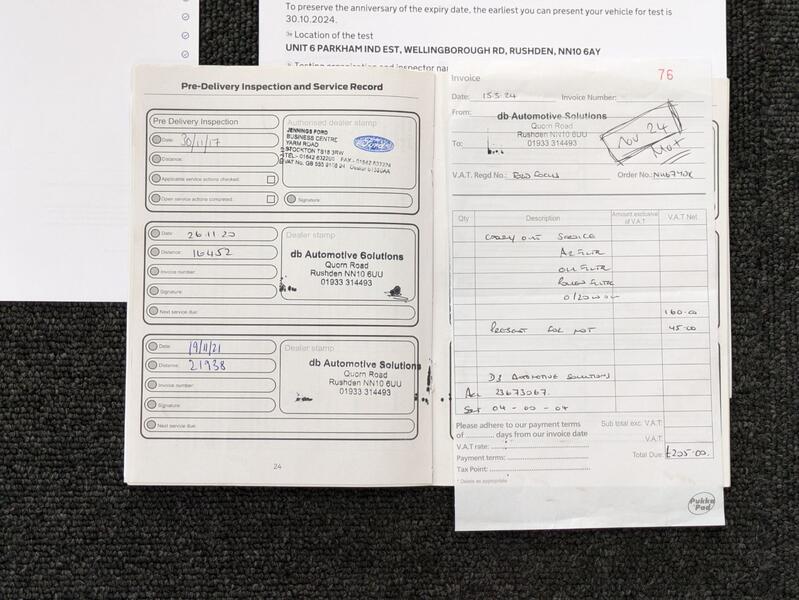 To preserve the anniversary of the expiry date, the earliest you can present your vehicle for test is
30.10.2024.
Location of the test
UNIT 6 PARKHAM IND EST, WELLINGBOROUGH RD, RUSHDEN, NN10 6AY
Pre-Delivery Inspection and Service Record
Pre Delivery Inspection
Date: 30/11/17
Distance:
Applicable service actions checked:
Open service actions completed:
Authorised dealer stamp
JENNINGS FORD
BUSINESS CENTRE
YARM ROAD
STOCKTON TS18 3RW
Ford
Signature:
Date: 26.11.20
Distance: 16452
Invoice number:
Signature:
Next service due:
Dealer stamp
db Automotive Solutions
Quorn Road
Rushden NN10 6UU
01933 314493
Date: 19/11/21
Distance: 21938
Invoice number:
Signature:
Next service due:
Dealer stamp
db Automotive Solutions
Quorn Road
Rushden NN10 6UU
01933 314493
24
Invoice
76
Date: 15.5.24 Invoice Number:
From:
db Automotive Solutions
Quorn Road
Rushden NN10 6UU
01933 314493
To:
Nov 24
MOT
V.A.T. Regd No.: FORD FOCUS Order No.:
Qty Description Amount exclusive of V.A.T V.A.T Net
CARRY OUT SERVICE
AIR FILTR
OIL FILTR
POLLEN FILTR
0/20
160-00
PRESENT FOR MOT 45-00
DB AUTOMOTIVE SOLUTIONS
23673067
04-00-04
Please adhere to our payment terms
of .......... days from our invoice date
Sub total exc. V.A.T:
V.A.T:
V.A.T rate:
Payment terms:
Total Due: £205-00
Tax Point:
* Delete as appropriate
Pukka Pad